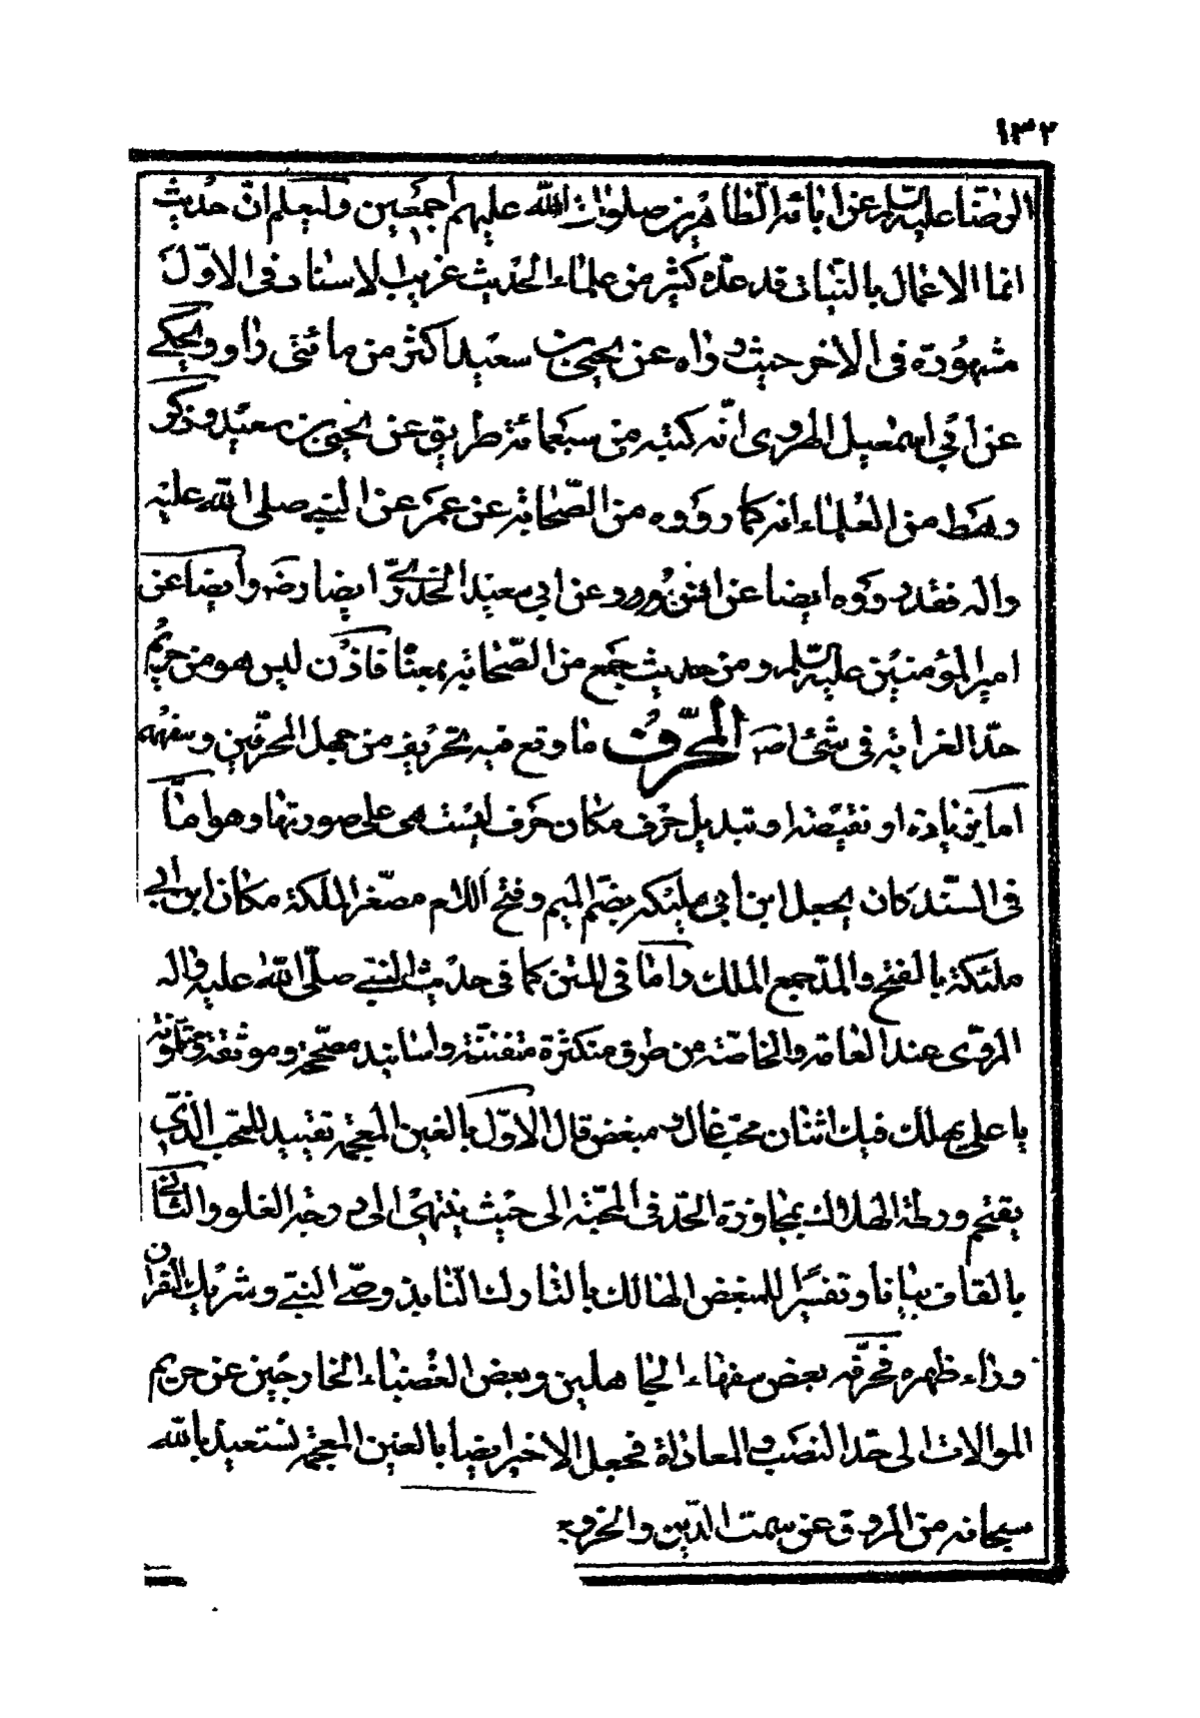 ١٣٢
الرضا عليه السلم عن ابائه الطاهرين صلوات الله عليهم اجمعين وليعلم ان حديث
انما الاعمال بالنيات قد عده كثير من علماء الحديث غريب الاسناد في الاول
مشهوره في الاخر حيث رواه عن يحيى بن سعيد اكثر من مائتي راو ويحكى
عن ابي اسمعيل الهروى انه كتبه من سبعمائة طريق عن يحيى بن سعيد وذكر
رهط من العلماء انه كما رووه من الصحابة عن عمر عن النبي صلى الله عليه
واله فقد رووه ايضا عن ابي سعيد الخدري ايضا رضه وايضا عن
امير المؤمنين عليه السلم ومن حديث جمع من الصحابة بمعناه فاذن ليس هو من حريم
حد الغرابة في شئ اصه المحرف ما وقع فيه تحريف من جهل المحرفين وسفههم
اما بزيادة او نقيصة او تبديل حرف مكان حرف ليست هى على صورتها وهو اما
في السند كان يجعل ابن ابي مليكه بضم الميم وفتح اللام مصغر الملكة مكان ابن ابي
ملئكة بالفتح والمد جمع الملك واما في المتن كما في حديث النبي صلى الله عليه واله
المروى عند العامة والخاصة من طرق متكثرة متفننة واسانيد مصححة وموثقة
يا علي يهلك فيك اثنان محب غال ومبغض قال الاول بالغين المعجمة تقييد للمحب الذى
يقتحم ورطة الهلاك بمجاوزة الحد في المحبة الى حيث ينتهى الى درجة الغلو والثاني
بالقاف بيانا وتفسيرا للمبغض الهالك بالتارك النابذ وصي النبي وشريك القران
وراء ظهره فحرفه بعض سفهاء الجاهلين وبعض الغضباء الخارجين عن حريم
الموالات الى حد النصب والمعاداة فجعل الاخير ايضا بالغين المعجمة نستعيذ بالله
سبحانه من المروق عن سمت الدين والخروج